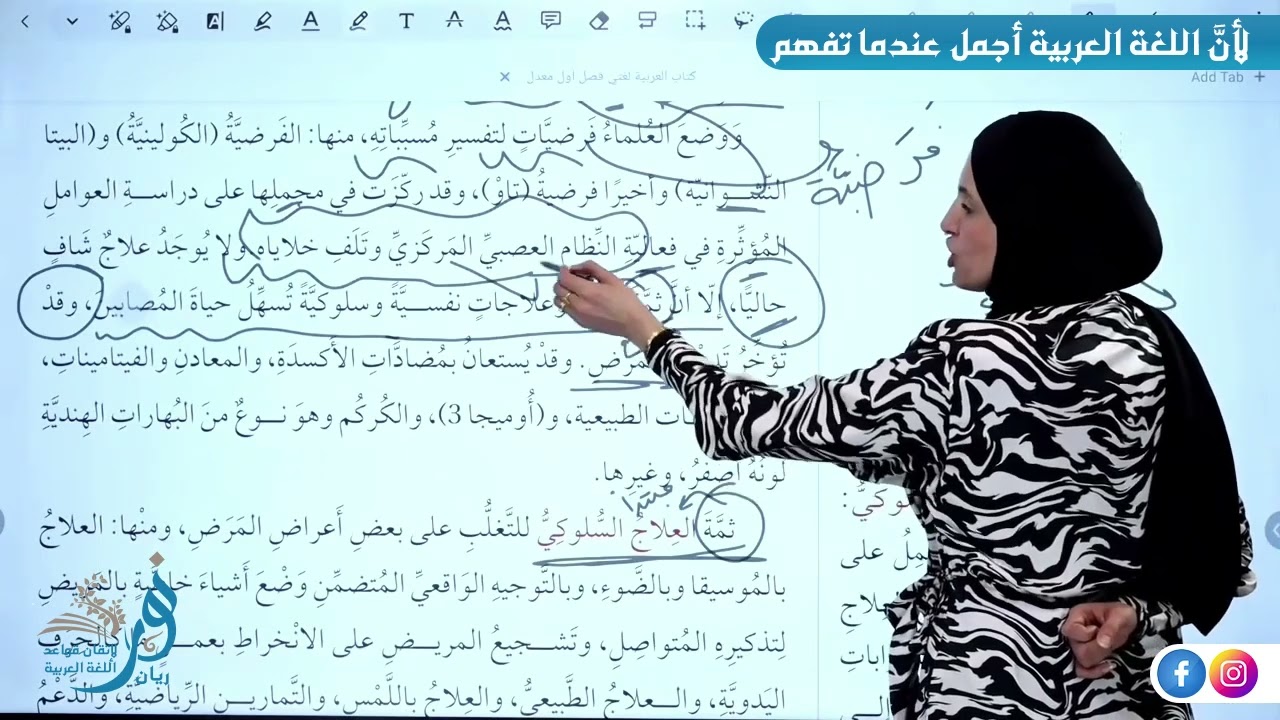 لأنَّ اللغة العربية أجمل عندما تفهم
كتاب العربية لغتي فصل اول معدل
Add Tab
وَوَضعَ العُلماءُ فَرضيَّاتٍ لتفسيرِ مُسبِّباتِهِ، منها: الفَرضيَّةُ (الكُولينيَّةُ) و(البيتا
النَّشَوانيّة) وأخيرًا فرضيةُ (تاوْ)، وقد ركّزَت في مجمِلِها على دراسةِ العواملِ
المُؤثِّرةِ في فعاليّةِ النِّظامِ العصبيِّ المَركَزيِّ وتَلَفِ خلاياه ولا يُوجَدُ علاجٌ شَافٍ
حاليًّا، إلّا أنَّ ثمَّ وعلاجاتٍ نفسيَّةً وسلوكيَّةً تُسهِّلُ حياةَ المُصابين، وقدْ
تُؤخِّرُ تَد مَرَض. وقدْ يُستعانُ بمُضادَّاتِ الأكسدَةِ، والمعادنِ والفيتاميناتِ،
ات الطبيعية، و(أُوميجا 3)، والكُركُم وهوَ نوعٌ منَ البُهاراتِ الهِنديَّةِ
لونُهُ أصفرُ، وغيرِها.
ثمَّةَ العِلاجُ السُّلوكيُّ للتَّغلُّبِ على بعضِ أَعراضِ المَرَضِ، ومنْها: العلاجُ
بالمُوسيقا وبالضَّوءِ، وبالتَّوجيهِ الوَاقعيِّ المُتضمِّنِ وَضْع أَشياءَ خاصةٍ بالمريضِ
لِتذكيرِهِ المُتواصِلِ، وتَشجيعُ المريضِ على الانْخراطِ كالحِرَفِ
اليَدويَّةِ، والعلاجُ الطَّبيعيُّ، والعِلاجُ باللَّمْسِ، والتَّمارينِ الرِّياضيَّةِ، والدَّعْمُ
فرضيّة
فَرَضيّة
مبتدأ
وكيُّ:
مِلُ على
علاجِ
اباتِ
إلى
لإتقان قواعد
اللغة العربية
ريان